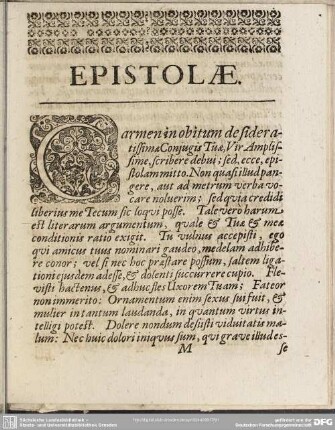 EPISTOLÆ.
Carmen in obitum desidera-
tissimæ Conjugis Tuæ, Vir Amplis-
sime, scribere debui; sed, ecce, epi-
stolam mitto. Non quasi illud pan-
gere, aut ad metrum verba vo-
care noluerim; sed qvia credidi
liberius me Tecum sic loqvi posse. Tale vero harum
est literarum argumentum, qvale & Tuæ & meæ
conditionis ratio exigit. Tu vulnus accepisti, ego
qvi amicus tuus nominari gaudeo, medelam adhibe-
re conor; vel si nec hoc præstare possum, saltem liga-
tioni ejusdem adesse, & dolenti succurrere cupio. Fle-
visti hactenus, & adhuc fles Uxorem Tuam; Fateor
non immerito: Ornamentum enim sexus sui fuit, &
mulier in tantum laudanda, in quantum virtus in-
telligi potest. Dolere nondum desiisti viduitatis ma-
lum: Nec huic dolori iniqvus sum, qvi grave illud es-
M se
Sächsische Landesbibliothek -
Staats- und Universitätsbibliothek Dresden
gefördert von der
Deutschen Forschungsgemeinschaft
DFG